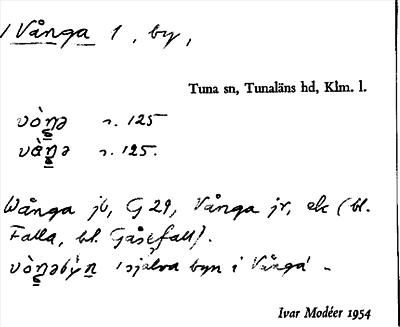 Vånga 1, by,
Tuna sn, Tunaläns hd, Klm. l.
vòŋə r. 125
vàŋə r. 125.
Wånga jb, G 29, Vånga jr, ek (bl.
Falla, bl. Gåsefall).
vòŋəbỳn själva byn i Vånga -
Ivar Modéer 1954